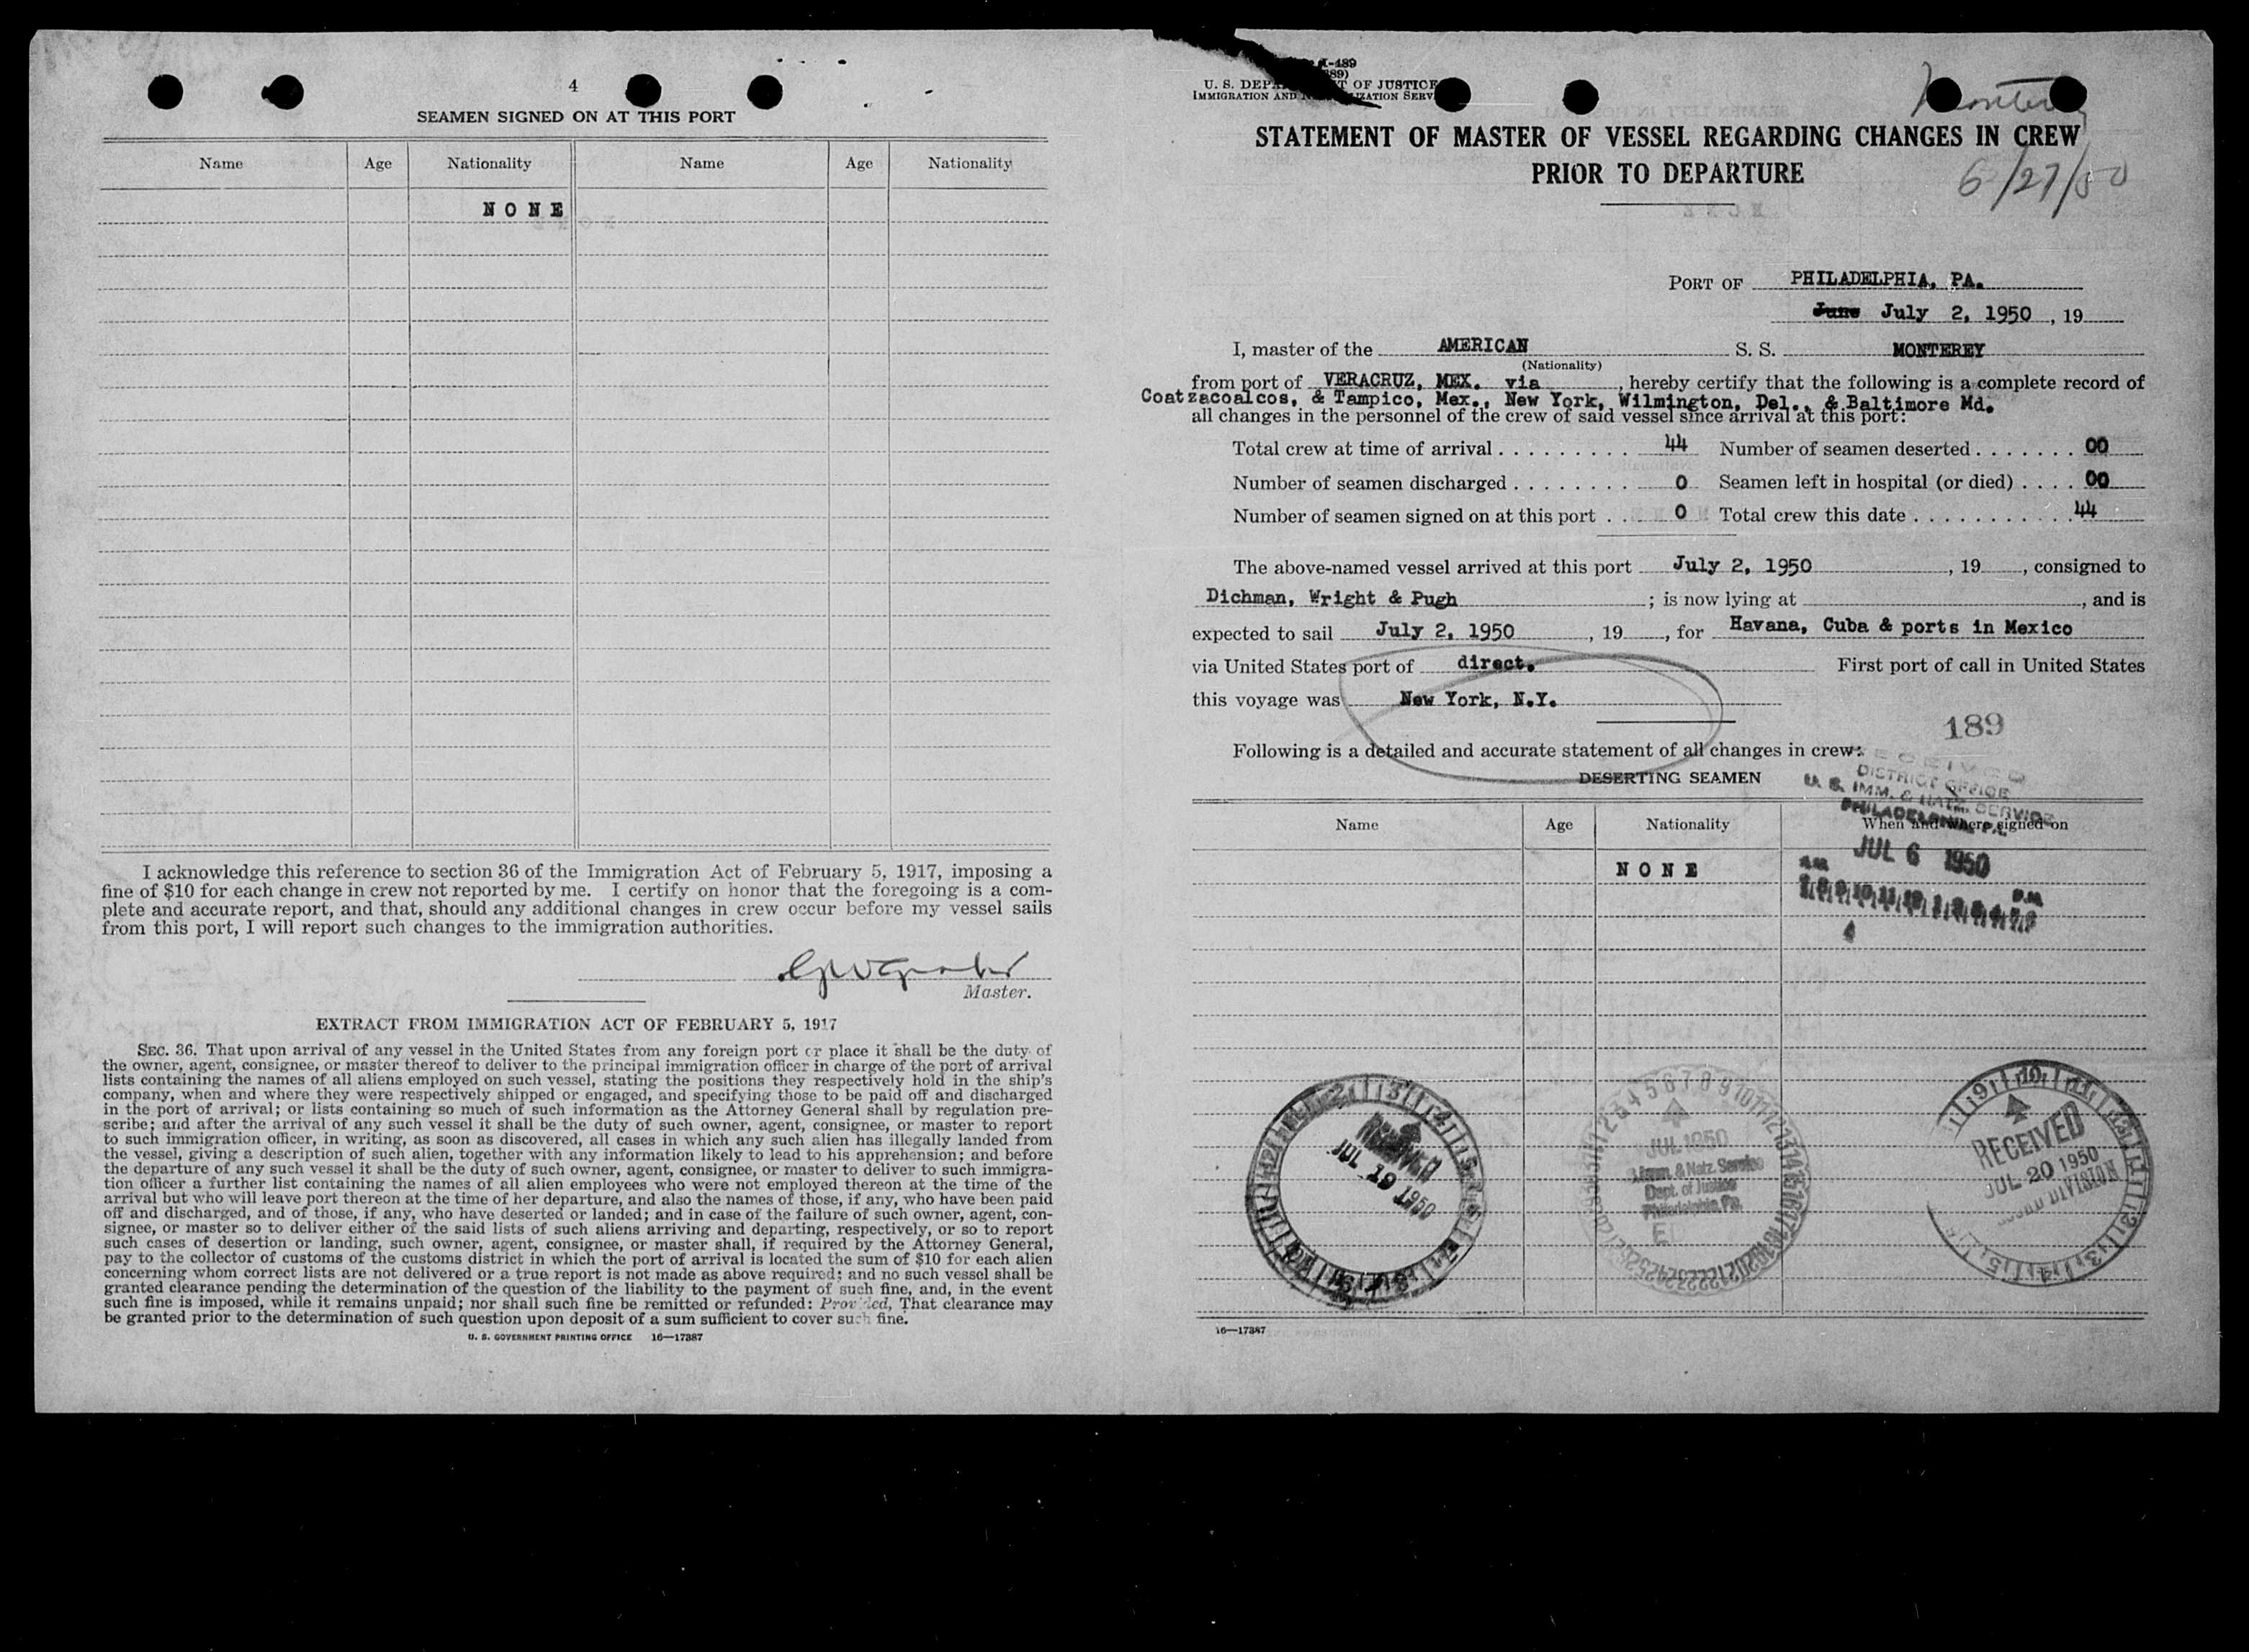 4
SEAMEN SIGNED ON AT THIS PORT
Name Age Nationality Name Age Nationality
NONE
I acknowledge this reference to section 36 of the Immigration Act of February 5, 1917, imposing a
fine of $10 for each change in crew not reported by me. I certify on honor that the foregoing is a com-
plete and accurate report, and that, should any additional changes in crew occur before my vessel sails
from this port, I will report such changes to the immigration authorities.
Master.
EXTRACT FROM IMMIGRATION ACT OF FEBRUARY 5, 1917
SEC. 36. That upon arrival of any vessel in the United States from any foreign port or place it shall be the duty of
the owner, agent, consignee, or master thereof to deliver to the principal immigration officer in charge of the port of arrival
lists containing the names of all aliens employed on such vessel, stating the positions they respectively hold in the ship's
company, when and where they were respectively shipped or engaged, and specifying those to be paid off and discharged
in the port of arrival; or lists containing so much of such information as the Attorney General shall by regulation pre-
scribe; and after the arrival of any such vessel it shall be the duty of such owner, agent, consignee, or master to report
to such immigration officer, in writing, as soon as discovered, all cases in which any such alien has illegally landed from
the vessel, giving a description of such alien, together with any information likely to lead to his apprehension; and before
the departure of any such vessel it shall be the duty of such owner, agent, consignee, or master to deliver to such immigra-
tion officer a further list containing the names of all alien employees who were not employed thereon at the time of the
arrival but who will leave port thereon at the time of her departure, and also the names of those, if any, who have been paid
off and discharged, and of those, if any, who have deserted or landed; and in case of the failure of such owner, agent, con-
signee, or master so to deliver either of the said lists of such aliens arriving and departing, respectively, or so to report
such cases of desertion or landing, such owner, agent, consignee, or master shall, if required by the Attorney General,
pay to the collector of customs of the customs district in which the port of arrival is located the sum of $10 for each alien
concerning whom correct lists are not delivered or a true report is not made as above required; and no such vessel shall be
granted clearance pending the determination of the question of the liability to the payment of such fine, and, in the event
such fine is imposed, while it remains unpaid; nor shall such fine be remitted or refunded: Provided, That clearance may
be granted prior to the determination of such question upon deposit of a sum sufficient to cover such fine.
U. S. GOVERNMENT PRINTING OFFICE 16—17387
I-489
U. S. DEPARTMENT OF JUSTICE
IMMIGRATION AND NATURALIZATION SERV
Monterey
STATEMENT OF MASTER OF VESSEL REGARDING CHANGES IN CREW
PRIOR TO DEPARTURE
6/27/50
PORT OF PHILADELPHIA, PA.
June July 2, 1950 , 19
I, master of the AMERICAN S. S. MONTEREY
(Nationality)
from port of VERACRUZ, MEX. via , hereby certify that the following is a complete record of
Coatzacoalcos, & Tampico, Mex., New York, Wilmington, Del., & Baltimore Md.
all changes in the personnel of the crew of said vessel since arrival at this port:
Total crew at time of arrival . . . . . . . . . 44 Number of seamen deserted . . . . . . . 00
Number of seamen discharged . . . . . . . . 0 Seamen left in hospital (or died) . . . . 00
Number of seamen signed on at this port . . 0 Total crew this date . . . . . . . . . . . 44
The above-named vessel arrived at this port July 2, 1950 , 19 , consigned to
Dichman, Wright & Pugh ; is now lying at , and is
expected to sail July 2, 1950 , 19 , for Havana, Cuba & ports in Mexico
via United States port of direct. First port of call in United States
this voyage was New York, N.Y.
189
Following is a detailed and accurate statement of all changes in crew:
DESERTING SEAMEN
RECEIVED
DISTRICT OFFICE
U. S. IMM. & NATZ. SERVICE
PHILADELPHIA, PA.
Name Age Nationality When and where signed on
JUL 6 1950
NONE
AM P.M.
RECEIVED
JUL 19 1950
JUL 1950
Imm. & Natz. Service
Dept. of Justice
Philadelphia, Pa.
RECEIVED
JUL 20 1950
DIVISION
16—17387